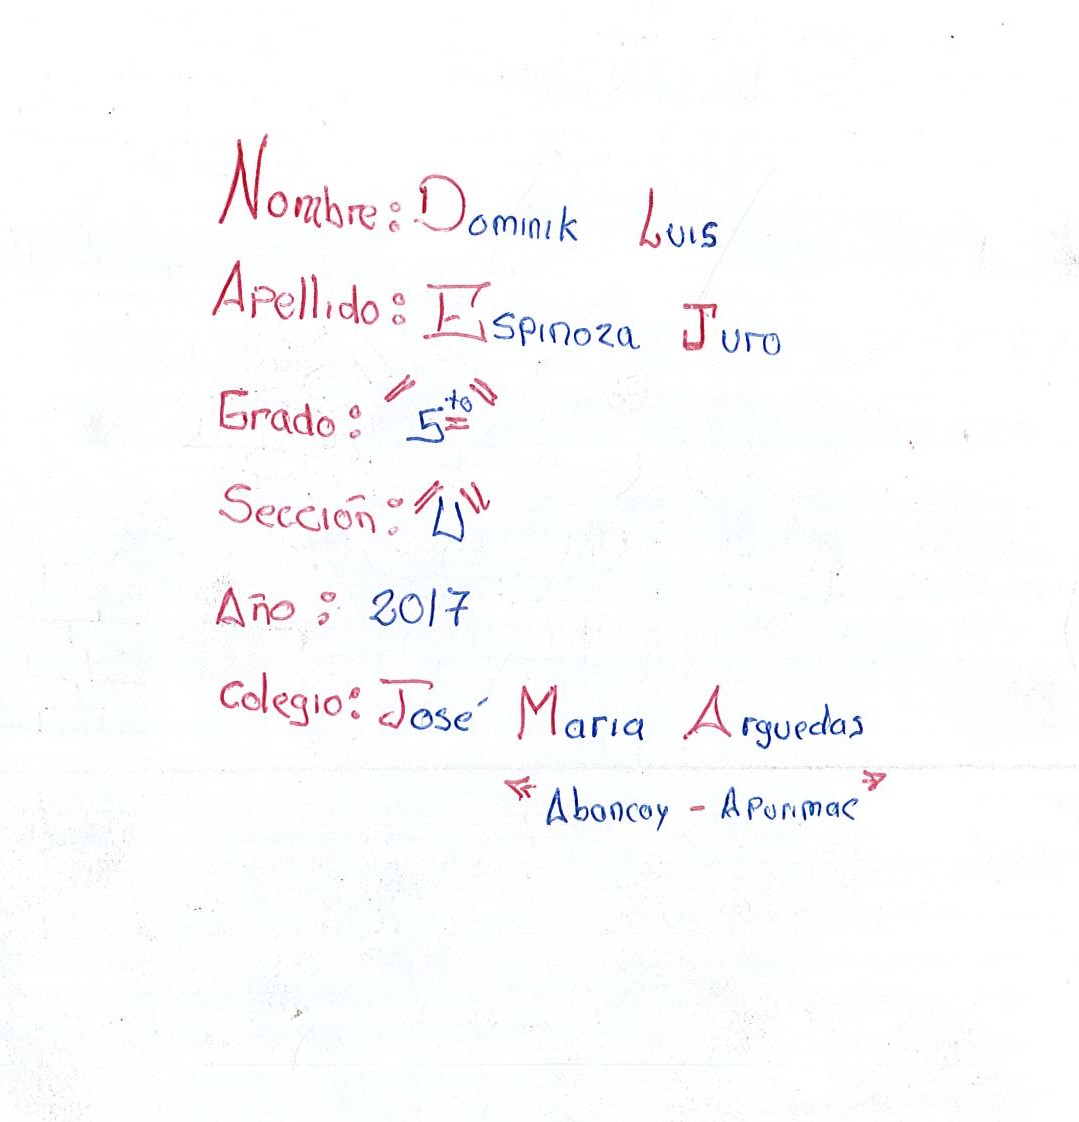 Nombre: Dominik Luis
Apellido: Espinoza Juro
Grado: "5to"
Sección: "U"
Año: 2017
Colegio: José Maria Arguedas
"Abancay - Apurimac"